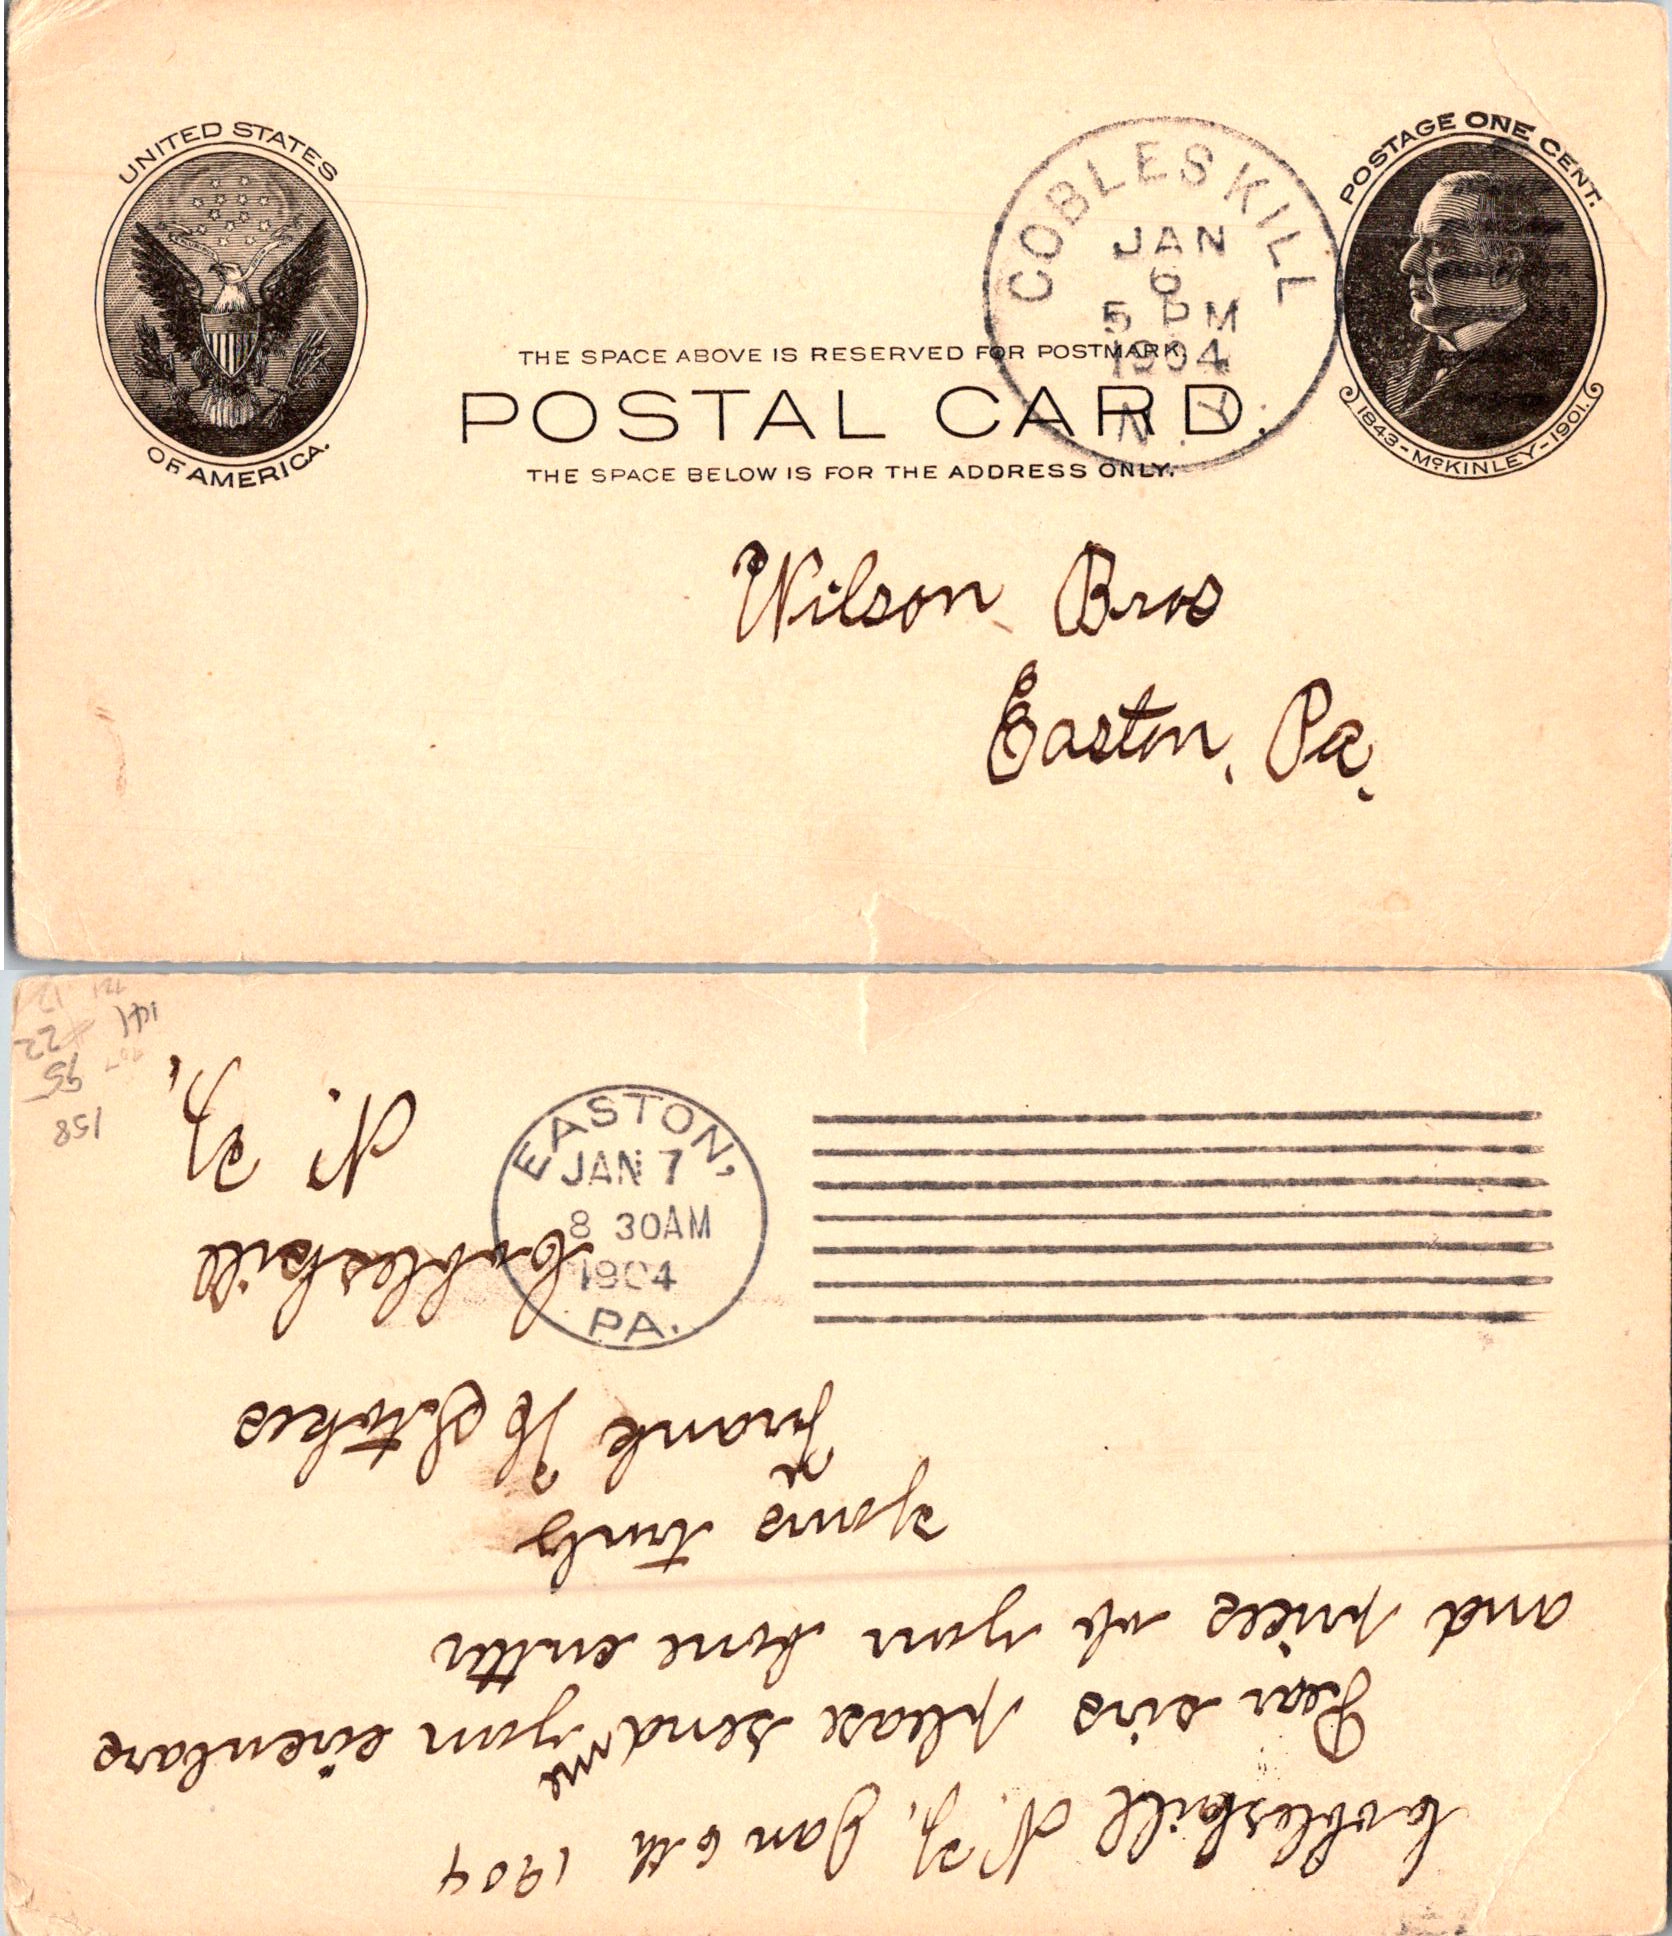 UNITED STATES
OF AMERICA.
COBLESKILL
JAN
6
5 PM
1904
N.Y.
POSTAGE ONE CENT.
1843-McKINLEY-1901.
THE SPACE ABOVE IS RESERVED FOR POSTMARK.
POSTAL CARD.
THE SPACE BELOW IS FOR THE ADDRESS ONLY.
Wilson Bros
Easton, Pa.
EASTON,
JAN 7
8 30AM
1904
PA.
158
95
22
141
Cobleskill N. Y, Jan 6th 1904
Dear sirs please send me your cirenlars
and prices of your bone cutter
Yours truly
Frank H Stokes
Cobleskill
N. Y,